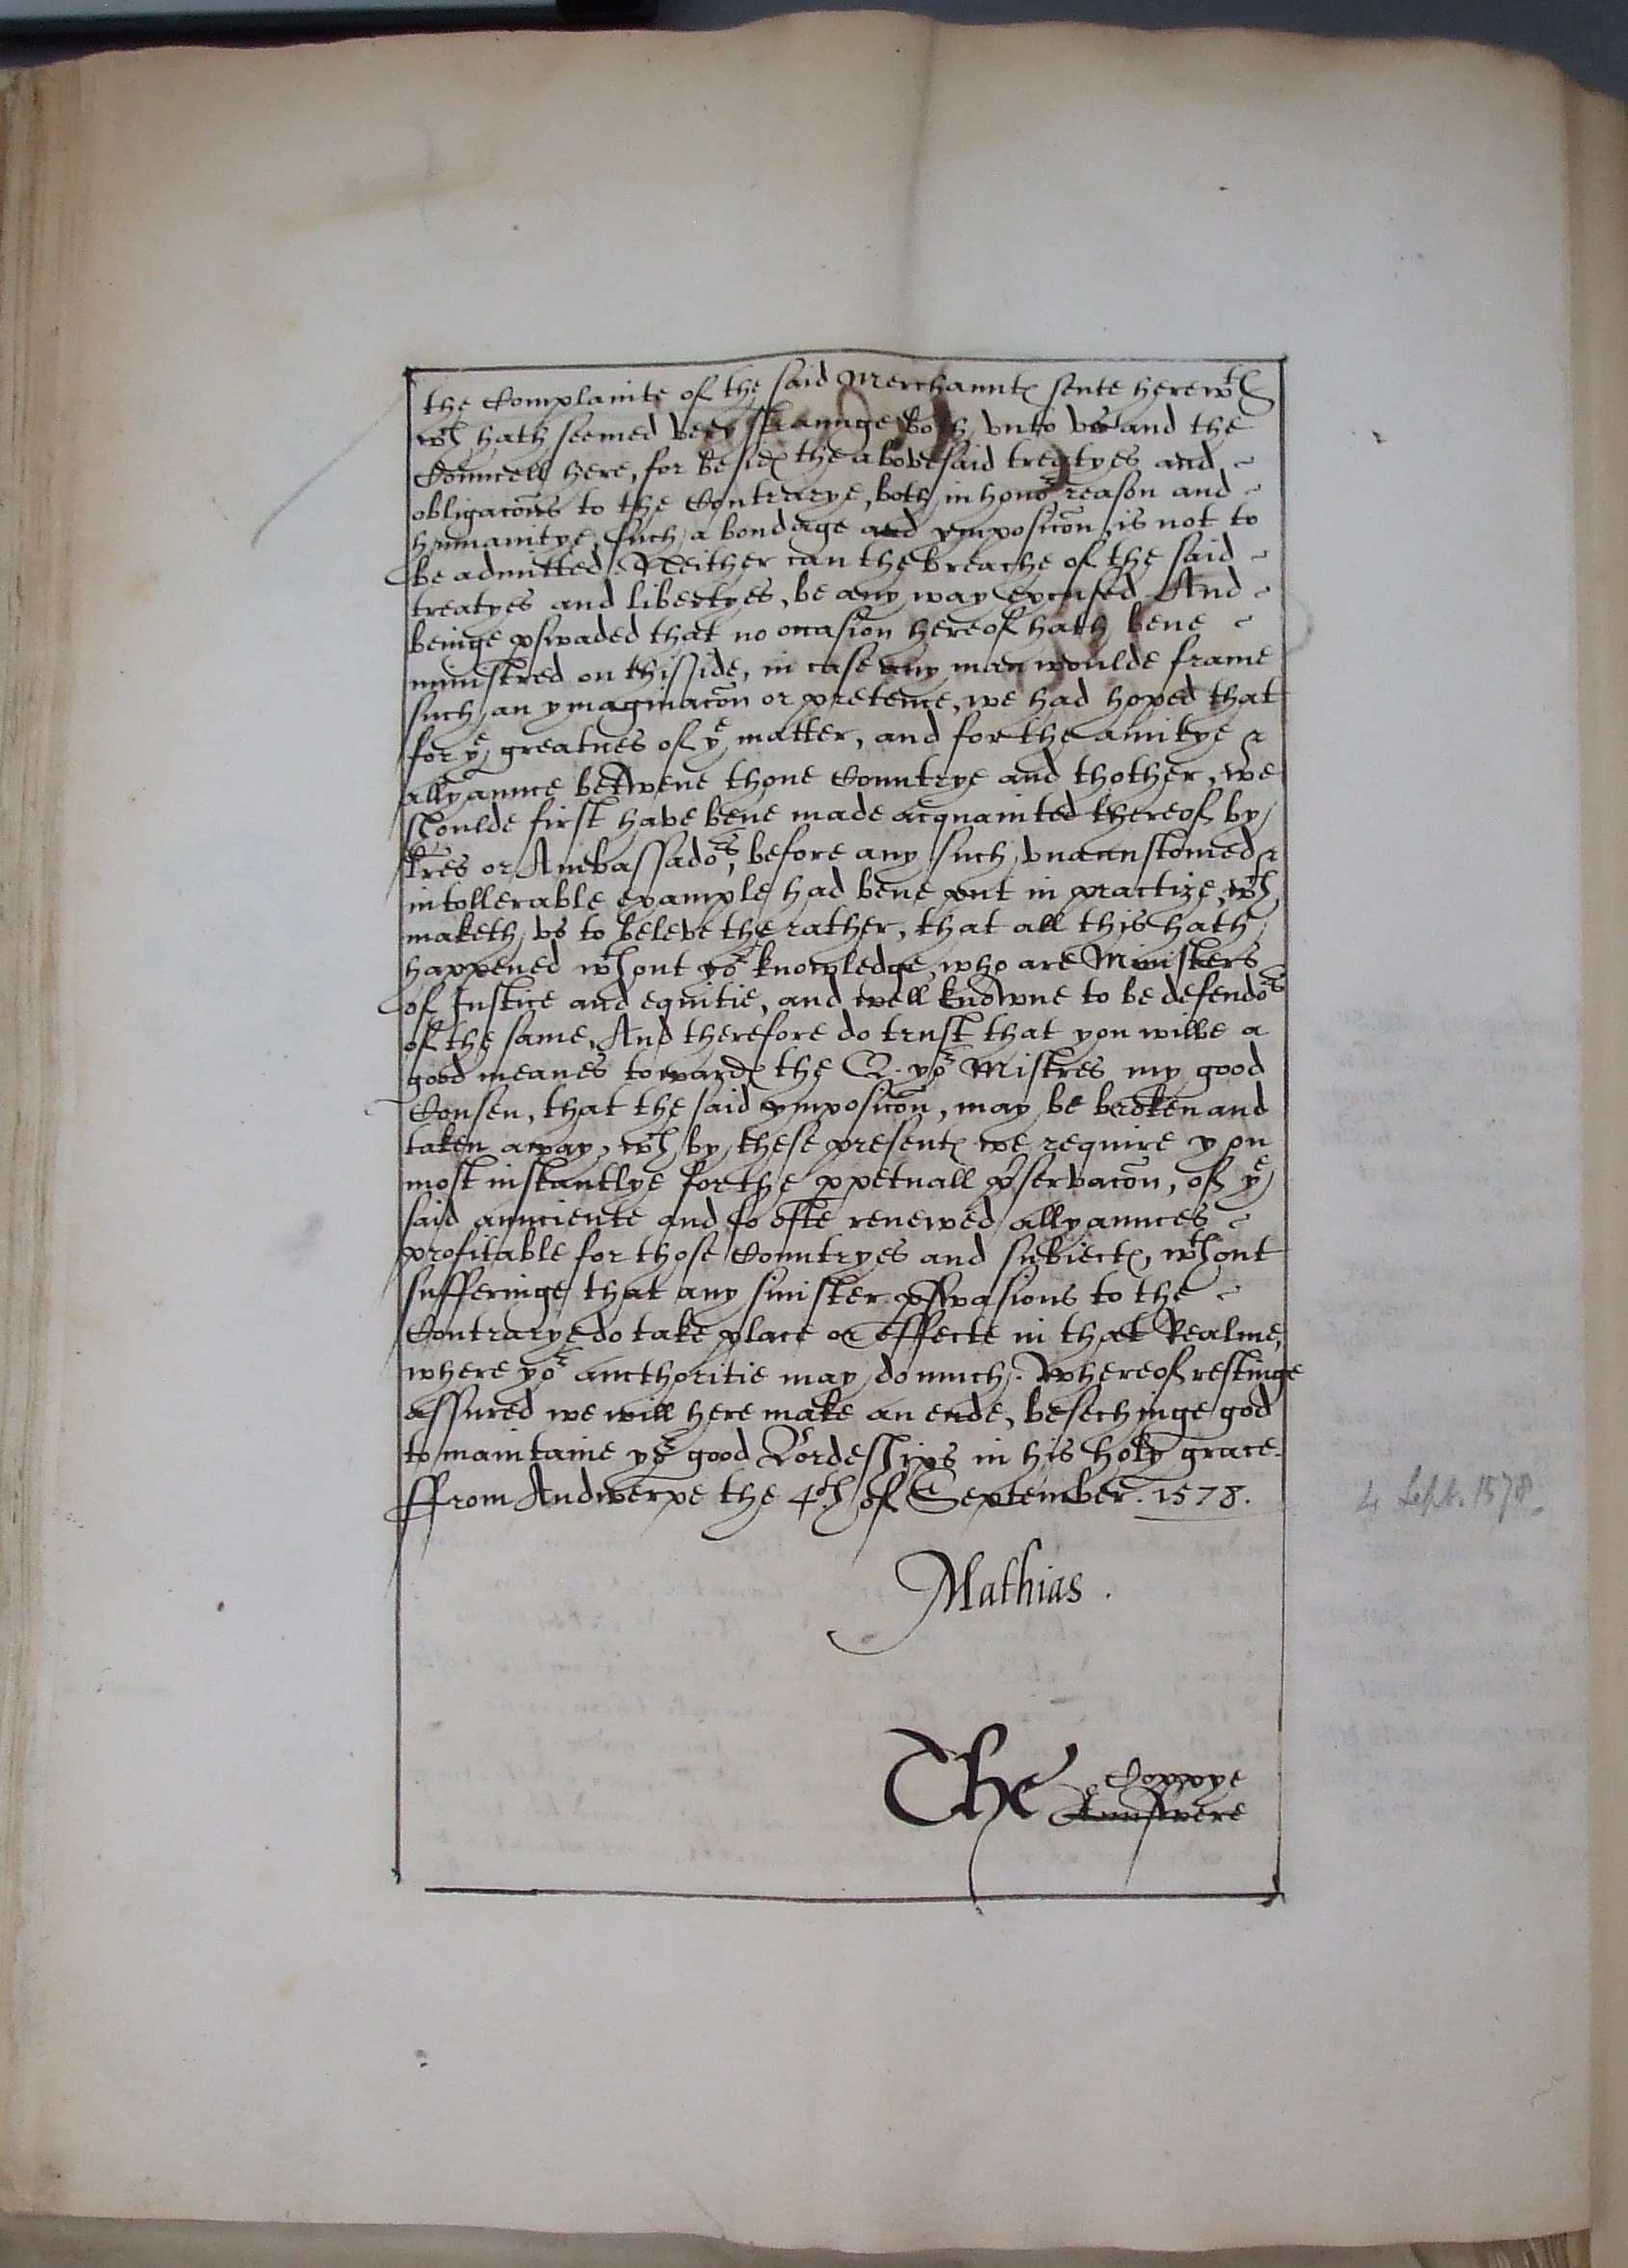 the Complainte of the said Merchauntes sente herewth
wch hath seemed very straunge both vnto vs and the
Councell here, for besides the abovesaid treatyes and
obligacōns to the Contrarye, both in honor reason and
humanitye, such a bondage and ymposicōn is not to
be admitted. Neither can the breache of the said
treatyes and libertyes, be any way excused. And
beinge pswaded that no occasion hereof hath bene
ministred on this side, in case any man woulde frame
such an ymaginacōn or pretence, we had hoped that
for ye greatnes of ye matter, and for the amitye &
allyaunce betwene thone Countrye and thother, we
shoulde first have bene made acquainted thereof by
lres or Ambassadors, before any such vnaccustomed &
intollerable example had bene put in practize, wch
maketh vs to beleve the rather, that all this hath
happened wthout yor knowledge, who are Ministers
of Justice and equitie, and well knowne to be defendors
of the same, And therefore do trust that you wilbe a
good meanes towardes the Q. yor Mistres my good
Consen, that the said ymposicōn, may be broken and
taken away, wch by these presentes we require you
most instantlye for the ppetuall pservacōn, of ye
said aunciente and so ofte renewed allyaunces
profitable for those Countryes and subiectes, wthout
sufferinge that any sinister pswasions to the
Contrarye do take place or effecte in that Realme,
where yor aucthoritie may do much. Whereof restinge
assured we will here make an ende, besechinge god
to maintaine yor good Lordeships in his holy grace.
ffrom Andwerpe the 4th of September. 1578.
4 Sept. 1578.
Mathias.
The Coppye
Aunswere